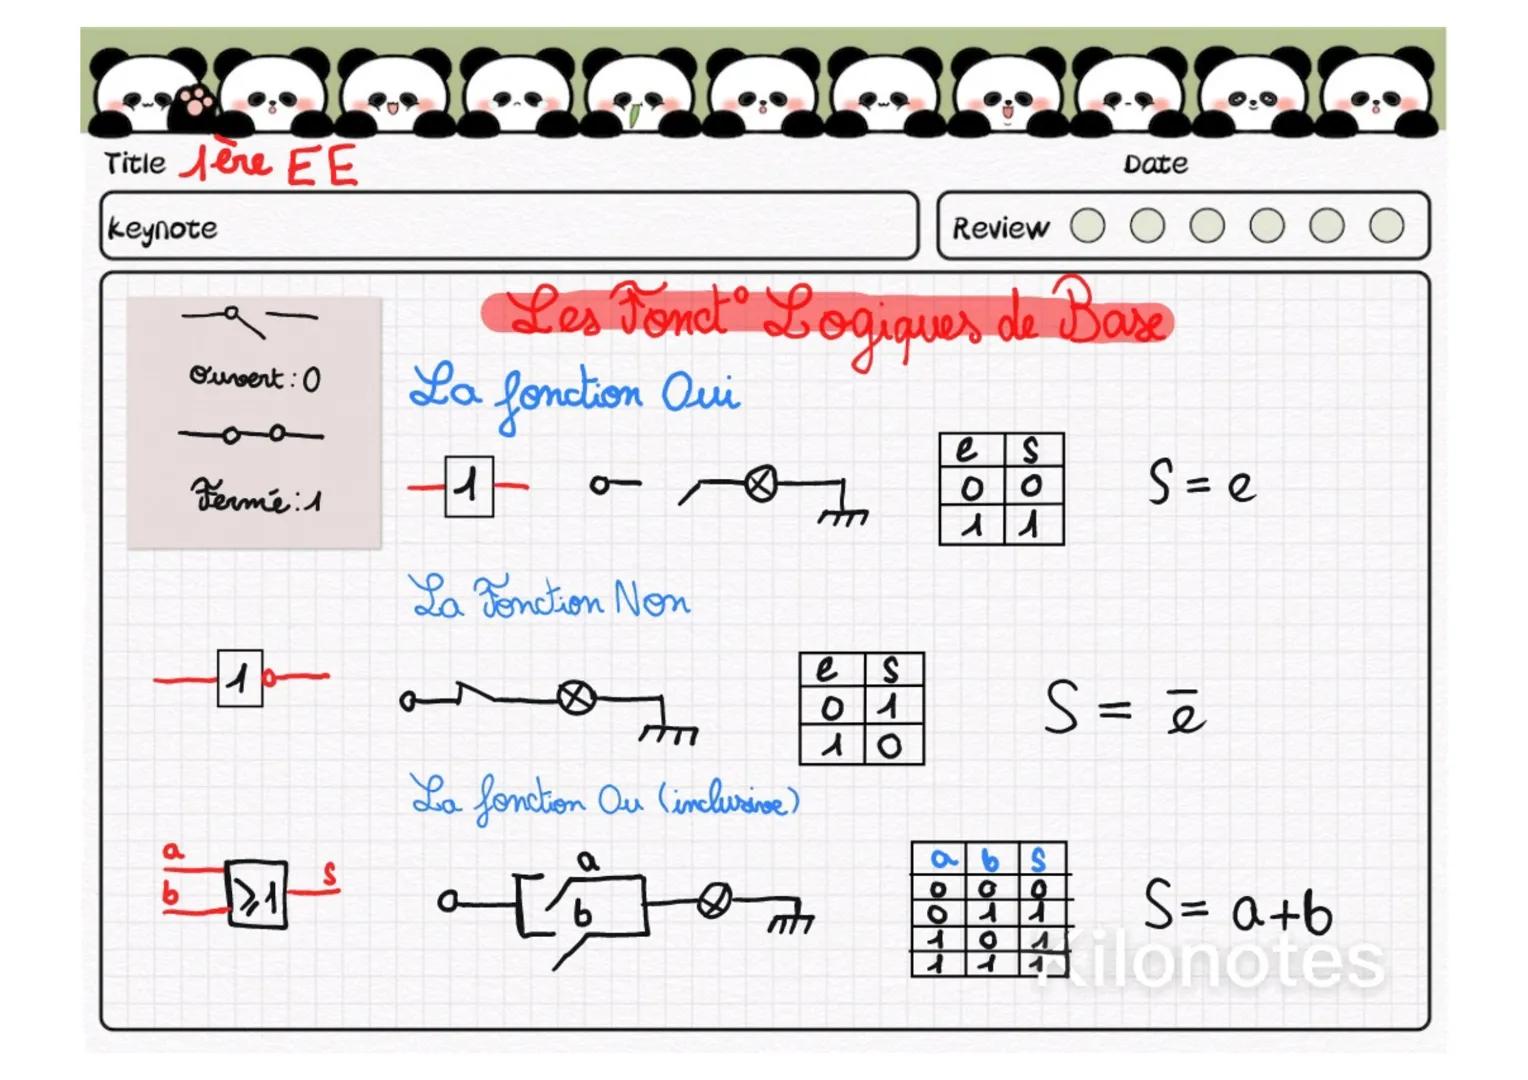 Title 1ère EE
Date
keynote
Review
Les Fonct° Logiques de Base
Ouvert : 0
Fermé : 1
La fonction Oui
1
e s
0 0
1 1
S = e
La Fonction Non
1
e s
0 1
1 0
S = e̅
La fonction Ou (inclusive)
a
b
≥1
s
a
b
a b s
0 0 0
0 1 1
1 0 1
1 1 1
S = a+b
Kilonotes